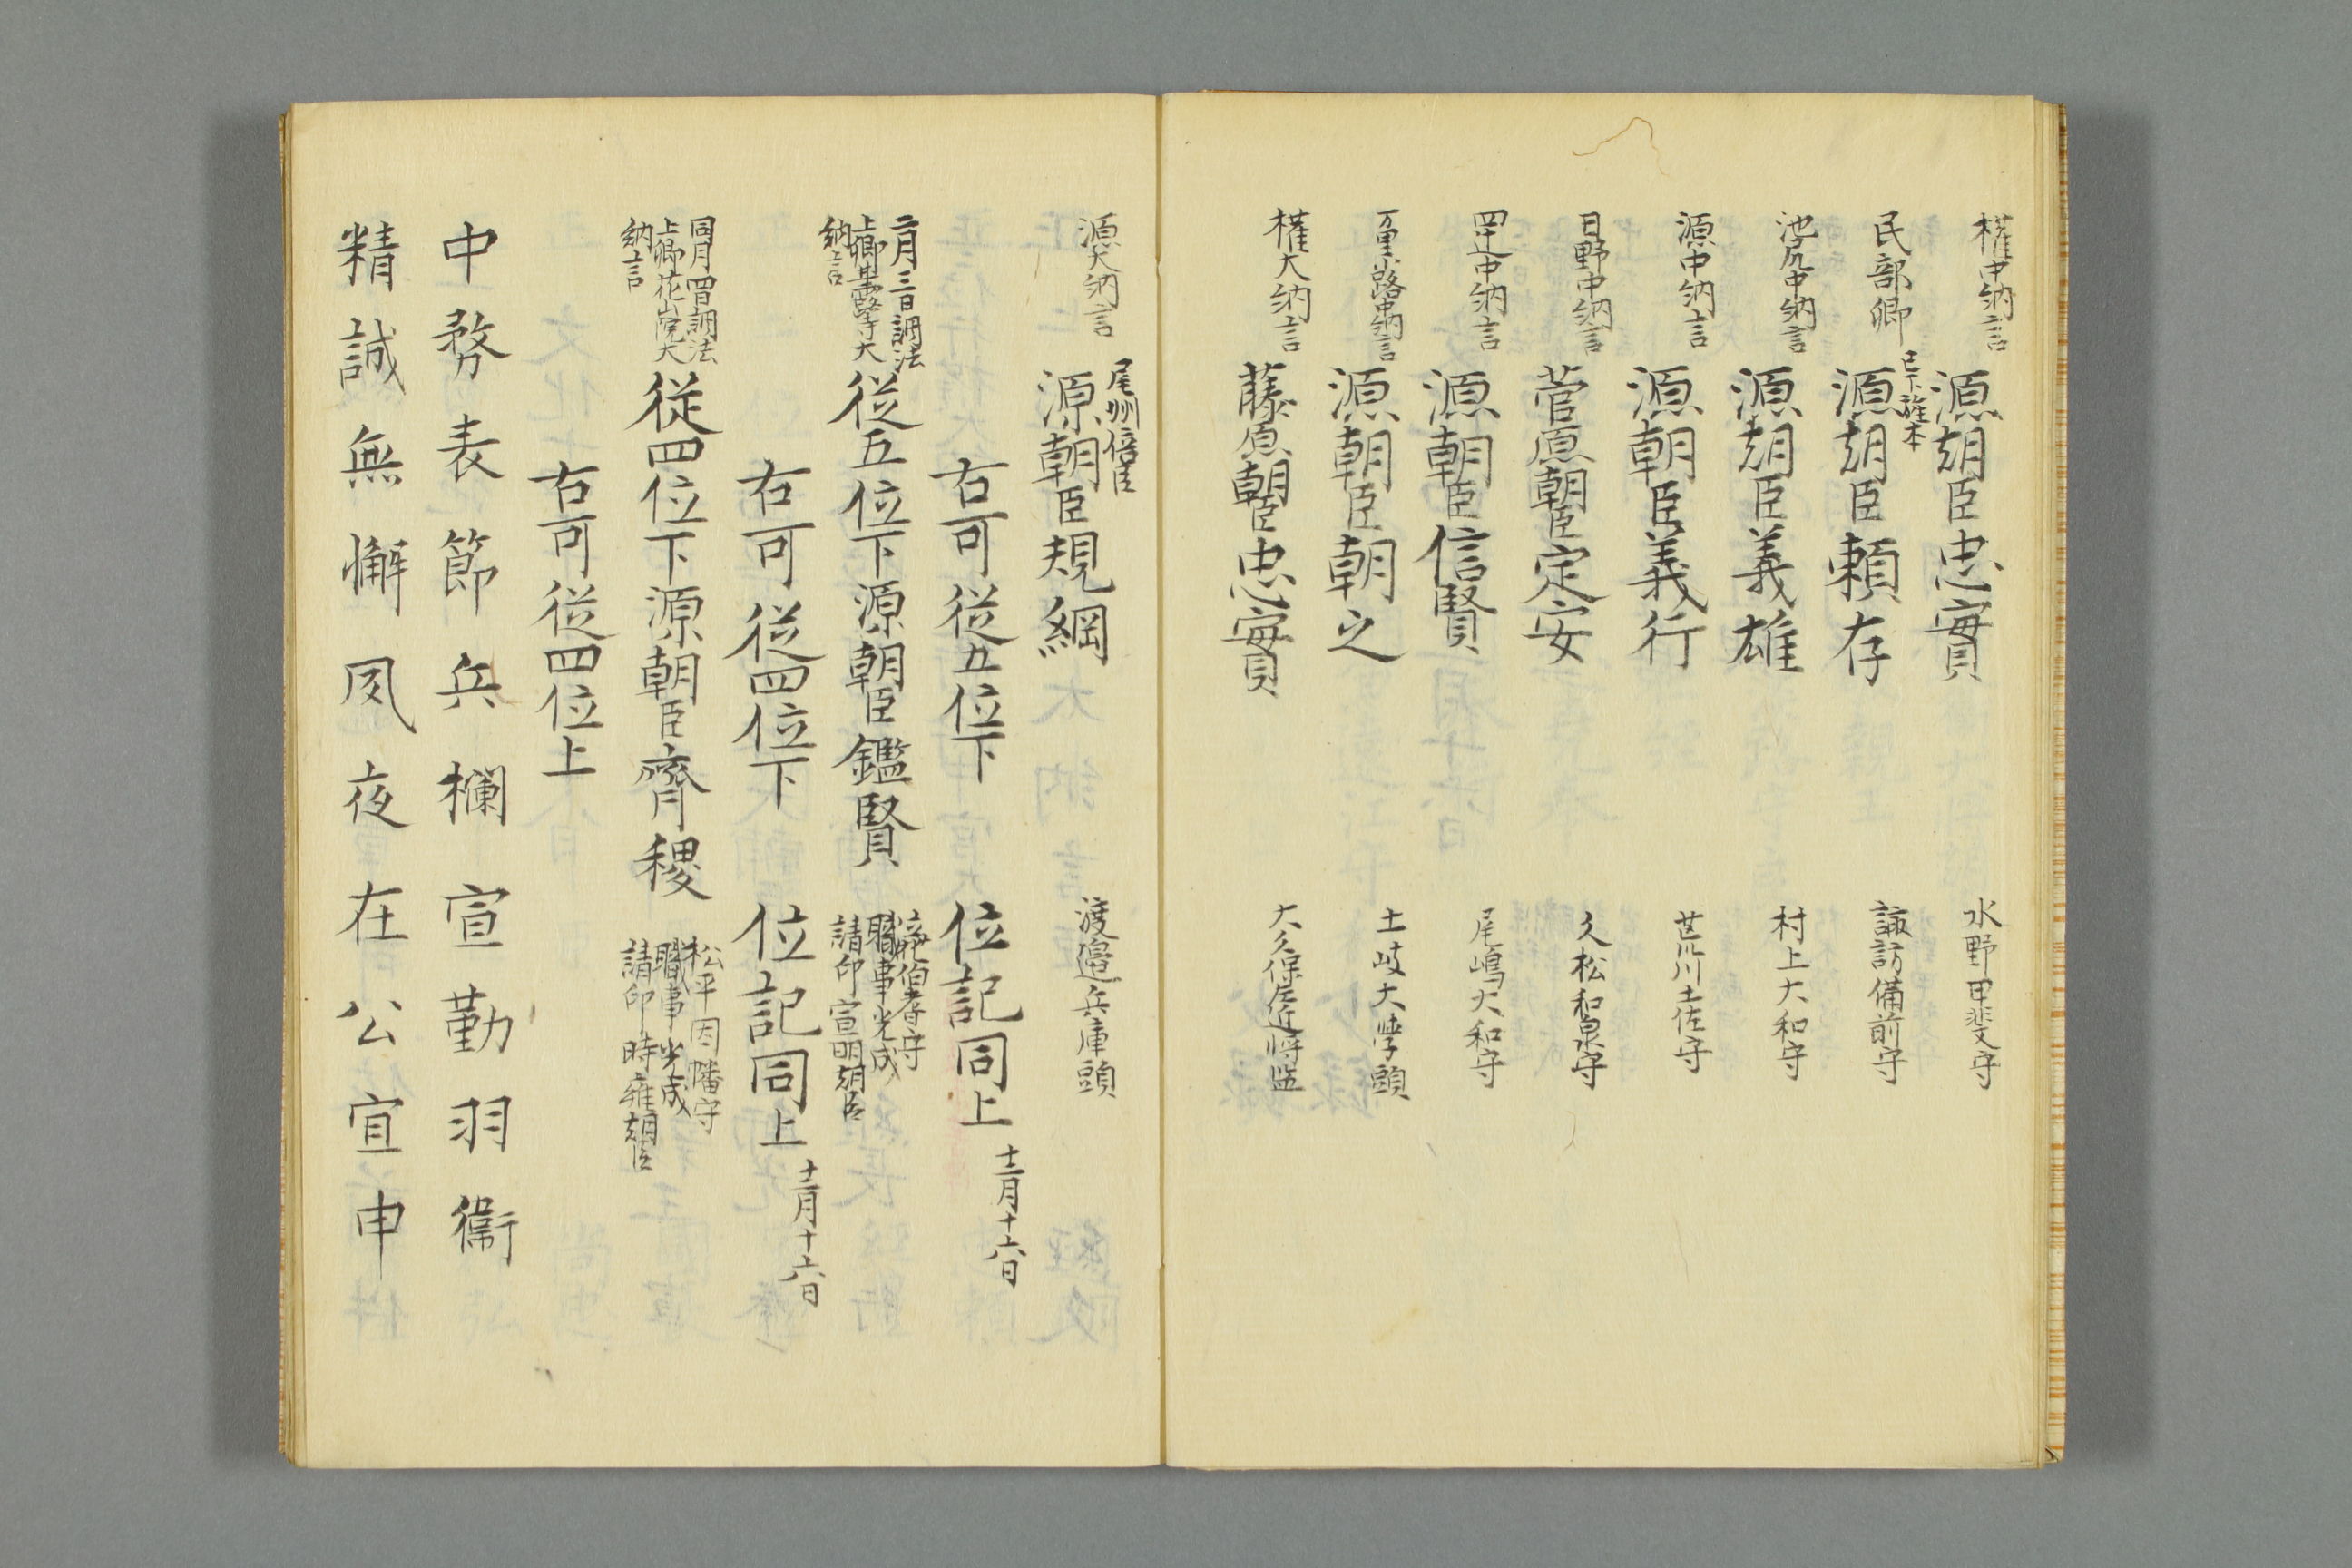 権中納言 源朝臣忠實 水野甲斐守
民部卿 已下旗本 源朝臣頼存 諏訪備前守
池尻中納言 源朝臣義雄 村上大和守
源中納言 源朝臣義行 荒川土佐守
日野中納言 菅原朝臣定安 久松和泉守
四辻中納言 源朝臣信賢 尾嶋大和守
万里小路中納言 源朝臣朝之 土岐大学頭
権大納言 藤原朝臣忠實 大久保左近将監
源大納言 尾州倍臣 源朝臣規綱 渡邉兵庫頭
右可従五位下 位記同上 十二月十六日
二月三日調法
上卿甘露寺大
納言
従五位下源朝臣鑑賢
伯耆守
職事光成
請印宣明朝臣
右可従四位下 位記同上 十二月十六日
同月四日調法
上卿花山院大
納言
従四位下源朝臣齊稷
松平因幡守
職事光成
請印時雍朝臣
右可従四位上
中務表節兵欄宣勤羽衛
精誠無懈夙夜在公宜申